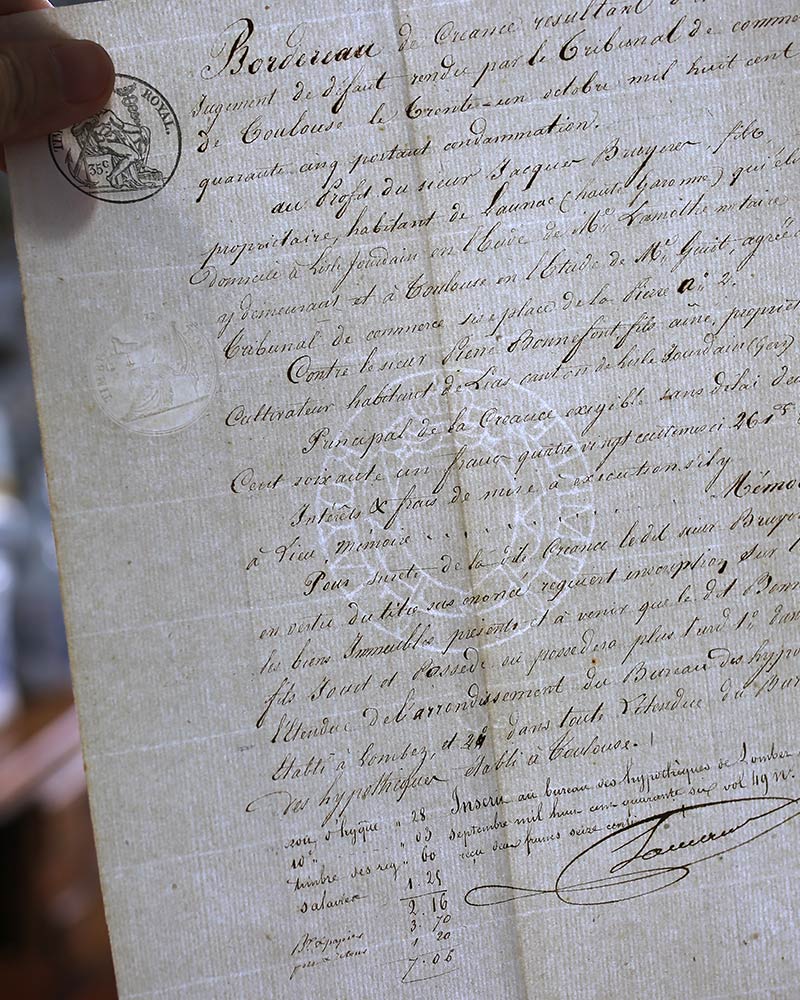 TIM ROYAL.
35c.
Bordereau de Creance resultant d'un
Jugement de défaut rendu par le Tribunal de comme
de Toulouse le Trente-un octobre mil huit cent
quarante cinq portant condamnation.
au Profit du sieur Jacques Bruyeres, fils
proprietaire, habitant de Launac (haute Garonne) qui éli
domicile à Lisle Jourdain en l'Etude de Mr. Lamothe notaire
y demeurant et à Toulouse en l'Etude de Mr. agréé
Tribunal de commerce sise place de la Pierre n°. 2.
Contre le sieur Pierre Bonnefont fils aîné, propriet
Cultivateur habitant de Lias canton de lisle Jourdain (Gers)
Principal de la Creance exigible sans délai deu
Cent soixante un francs quatre vingt centimes ci 261f
Intérêts & frais de mise à execution s'il y
à Lieu, mémoire . . . . . . . . . Mémo
Pour sureté de la dite Creance le dit sieur Bruye
en vertu du titre sus énoncé requiert inscription sur
les biens Immeubles présents et à venir que le dit Bonn
fils Jouit et Possède ou possedera plus tard 1°. dans
l'Etendue de l'arrondissement du Bureau des hypo
Etabli à Lombez, et 2°. dans toute l'étendue du Bur
des hypothèques établi à Toulouse.
d'hyque " 28 Inscrit au bureau des hypothèques de Lombez
10e " 03 septembre mil huit cent quarante six vol 49 n°.
timbre des reg " 60 reçu deux francs seize centi
salaires 1. 25
2. 16
3. 70
1 20
7. 06